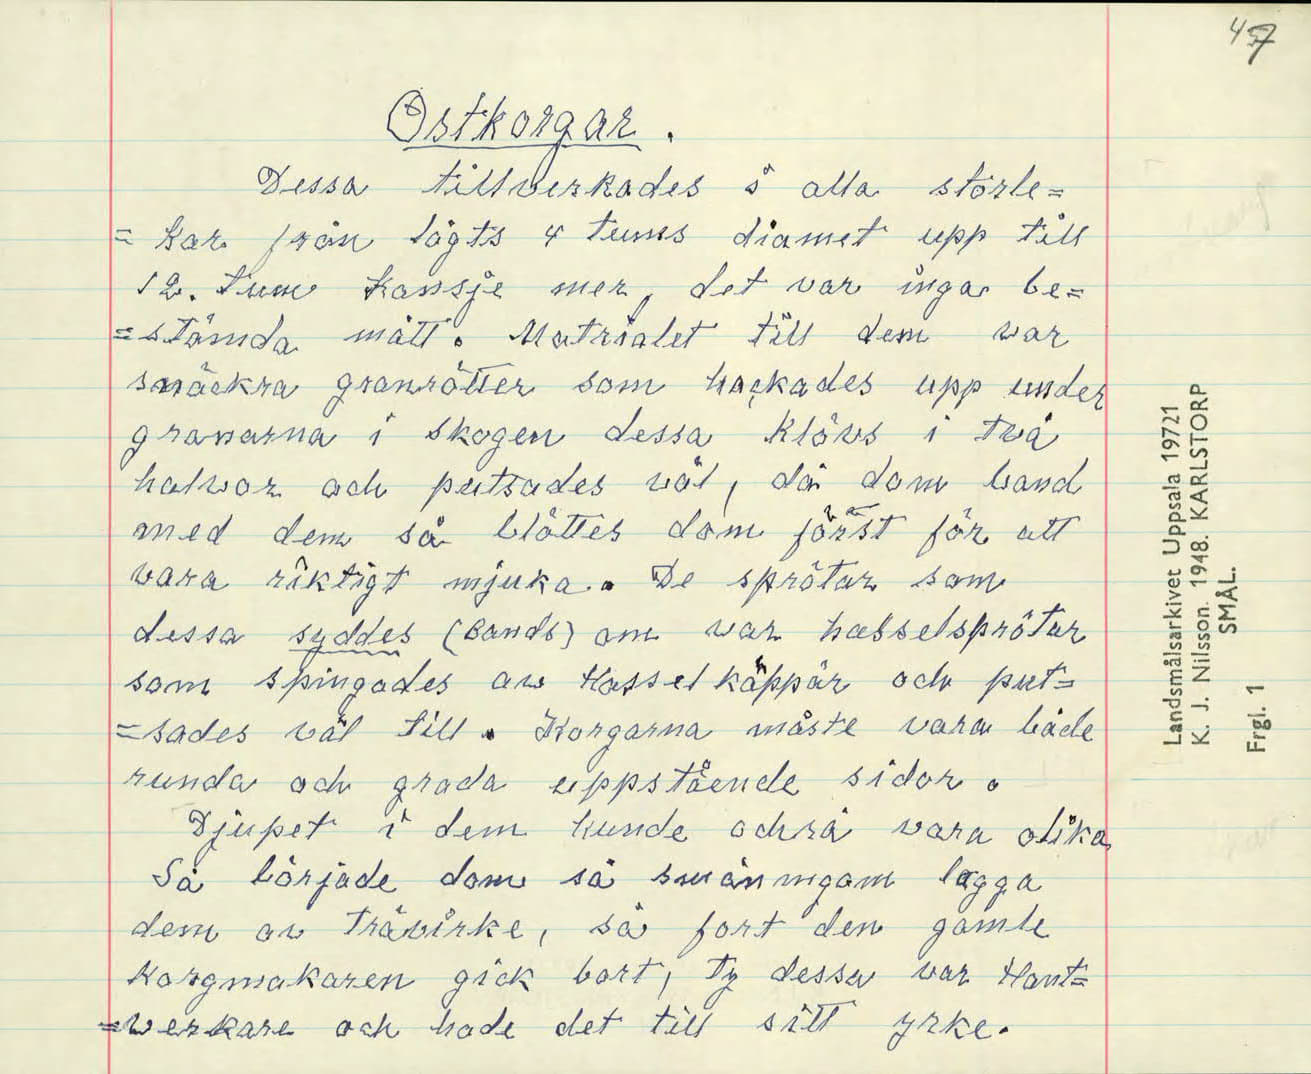 47
Ostkorgar.
Dessa tillverkades i alla störle=
=kar från lägts 4 tums diamet upp till
12. tum kansje mer, det var inga be=
=stämda mått. Matrialet till dem var
smäckra granrötter som hackades upp under
granarna i skogen dessa klövs i två
halvor och putsades väl, då dom band
med dem så blöttes dom först för att
vara riktigt mjuka. De sprötar som
dessa syddes (bands) om var hasselsprötar
som spingades av Hassel käppär och put=
=sades väl till. Korgarna måste vara både
runda och grada uppstående sidor.
Djupet i dem kunde också vara olika
Så började dom så småningom lagga
dem av trävirke, så fort den gamle
korgmakaren gick bort, ty dessa var Hant=
=verkare och hade det till sitt yrke.
Landsmålsarkivet Uppsala 19721
K. J. Nilsson. 1948. KARLSTORP
SMÅL.
Frgl. 1